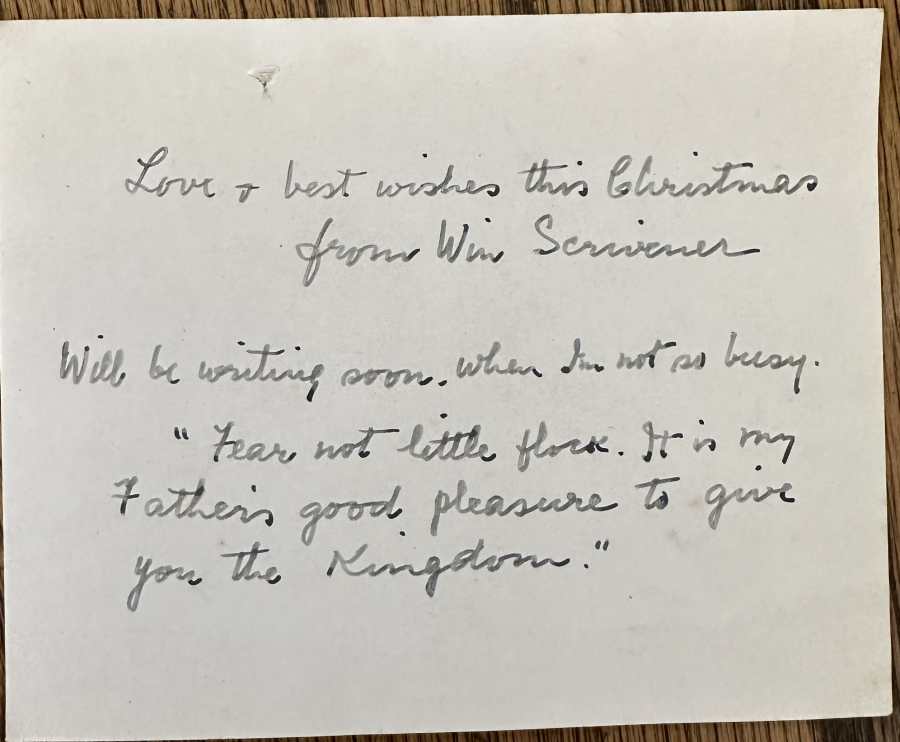 Love + best wishes this Christmas
from Win Scrivener
Will be writing soon. when I'm not so busy.
"Fear not little flock. It is my
Father's good pleasure to give
you the Kingdom."